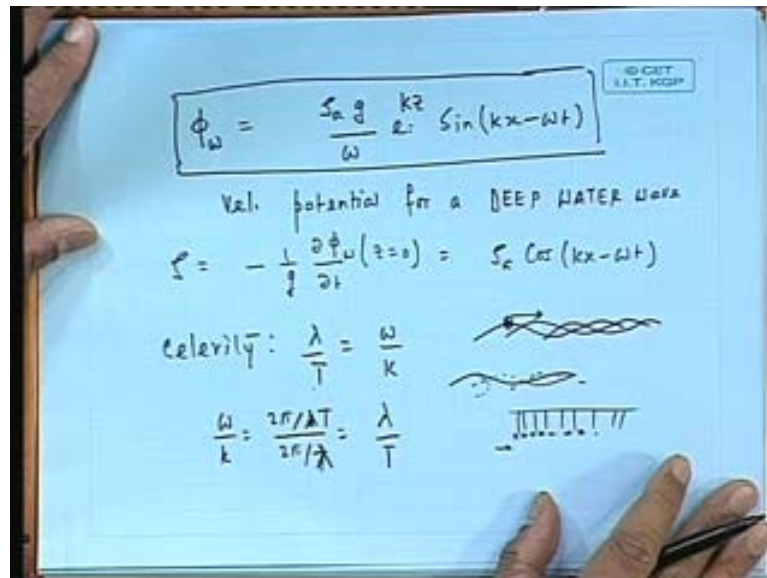 © CET
I.I.T. KGP
ϕ_ω = ζ_a g / ω e^{kz} Sin(kx-ωt)
Vel. potential for a DEEP WATER Wave
ζ = - 1/g ∂ϕ_ω/∂t (z=0) = ζ_a Cos(kx-ωt)
Celerity: λ/T = ω/k
ω/k = 2π/T / 2π/λ = λ/T